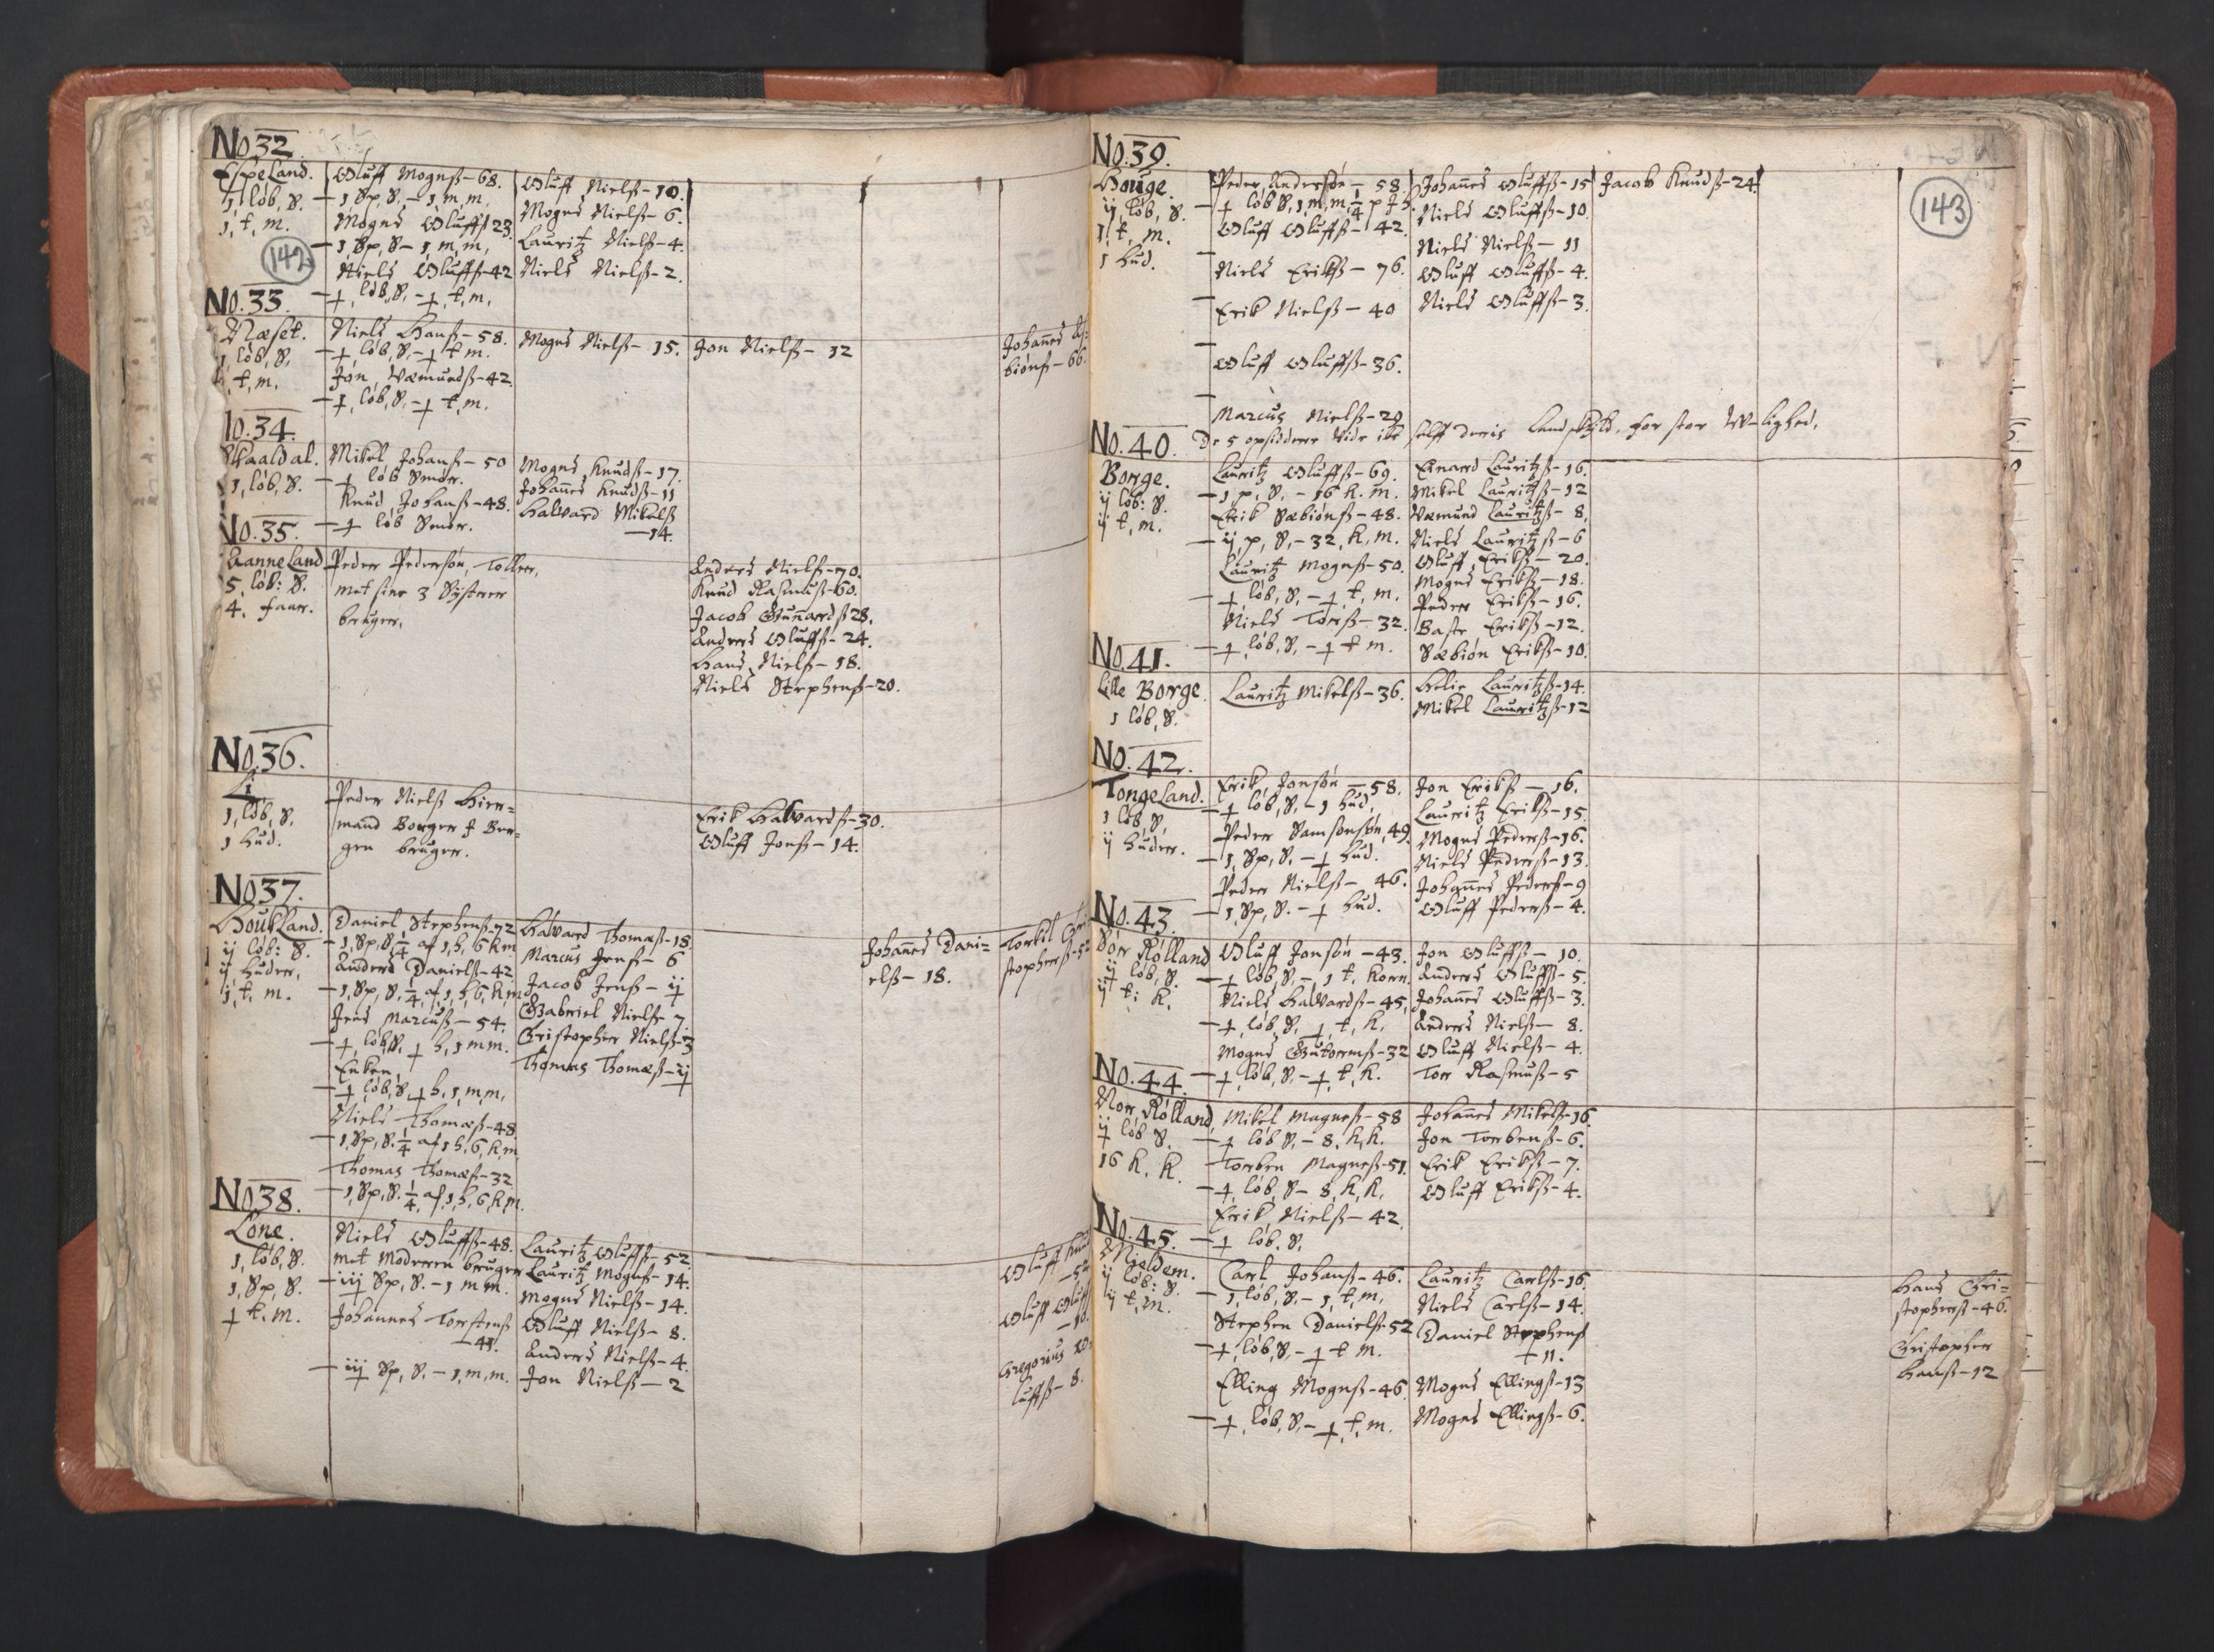 No 32
Espeland.
1, lób, S.
1, t, m.
142
Oluff Mognß - 68.
- 1, Sp, S, - 1, m, m,
Mogns Oluffß 23.
- 1, Sp, S - 1, m, m,
Niels Oluffß - 42
- ½, lób, S, - ½, t, m,
Oluff Nielß - 10.
Mogns Nielß - 6.
Lauritz Nielß - 4.
Niels Nielß - 2.
No. 33.
Næset.
1 lób, S,
t, m.
Niels Hanß - 58.
- ½, lób, S, - ½ t m.
Jon Væmundß - 42.
- ½, lób, S, - ½ t, m.
Mogns Nielß - 15.
Jon Nielß - 12
Johanes
biónß - 66.
10.34.
Skaaldal.
1, lób, S.
Mikel Johanß - 50
- ½ lób Smór.
Knud Johanß - 48.
- ½ lób Smór.
Mogns Knudß - 17.
Johanes Knudß - 11
Halvard Mikelß
- 14.
No. 35.
HanneLand
5, lób: S.
4. faar.
Peder Pedersón, Toller,
met sine 3 Systrer
bruger.
Anders Nielß - 70.
Knud Rasmuß - 60.
Jacob Gunardß 28.
Anders Oluffß - 24.
Hans Nielß - 18.
Niels Stephenß - 20.
No. 36.
Li
1, lób, S,
1 hud.
Peder Nielß Hier=
mand Borger i Ber=
gen bruger.
Erik Halvardß - 30.
Oluff Jonß - 14.
No 37.
HoukLand.
ij lób: S.
ij huder,
1, t, m.
Daniel Stephenß - 72
- 1, Sp, S, ¼ af 1, h, 6 k m
Anders Danielß - 42
- 1, Sp, S, ¼, af, 1, h, 6, k, m
Jens Marcuß - 54.
- ½, lób, S, ½ h, 1 m m.
Enken
- ½ lób, S, ½ h, 1, m, m,
Niels Thomæß - 48
- 1, Sp, S. ¼ af 1 h, 6, k, m
Thomas Thomæß - 32
- 1, Sp, S. ¼ af, 1, h, 6, k, m.
Halvard Thomæß - 18
Marcus Jenß - 6
Jacob Jenß - ij
Gabriel Nielß 7
Cristopher Nielß - 3
Thomas Thomæß - ij
Johanes Dani=
elß - 18.
Torkil Cri
stopherß - 52
No 38.
Lone.
1, lób, S.
1, Sp, S.
½ t. m.
Niels Oluffß - 48.
met Moderen bruger
- iij Sp, S. - 1 m m.
Johannes Torstenß
- 41.
- iij Sp, S. - 1, m, m.
Lauritz Oluffß - 52.
Lauritz Mognß - 14.
Mogns Nielß - 14.
Oluff Nielß - 8.
Anders Nielß - 4.
Jon Nielß - 2
Oluff Knud
- 52
Oluff Oluff
- 10.
Gregorius O
luffß - 8.
No. 39.
Houge.
ij, lób, S.
1, t, m.
1 hud.
Peder Andersón - 58.
Oluff Oluffß - 42.
Niels Erikß - 76.
Erik Nielß - 40
Oluff Oluffß - 36.
Marcus Nielß - 29
Johanes Oluffß - 15
Niels Oluffß - 10.
Niels Nielß - 11
Oluff Oluffß - 4.
Niels Oluffß - 3.
Jacob Knudß - 24.
143
De 5 opsiddere vide ike self deris Landskyld, for stor U-lighed,
No. 40.
Borge.
ij lób: S.
ij t, m.
Lauritz Oluffß - 69.
- 1, p, S, - 16 k. m.
Erik Sæbiónß - 48.
- ij, p, S, - 32, k, m.
Lauritz Mognß - 50.
- ½, lób, S, - ½, t, m.
Niels Torß - 32.
- ½, lób, S, - ½ t m.
Enard Lauritzß - 16.
Mikel Lauritzß - 12
Væmund Lauritzß - 8,
Niels Lauritzß - 6
Oluff Erikß - 20.
Mogns Erikß - 18.
Peder Erikß - 16.
Baste Erikß - 12.
Sæbión Erikß - 10.
No. 41.
Lille Borge.
1 lób, S.
Lauritz Mikelß - 36.
Helie Lauritzß - 14.
Mikel Lauritzß - 12
No. 42.
TongeLand.
1 lób, S,
ij huder.
Erik Jonsón - 58.
- ½ lób, S, - 1 hud,
Peder Samsonsón, 49.
- 1, Sp, S. - ½ hud.
Peder Nielß - 46.
- 1, Sp, S. - ½ hud.
Jon Erikß - 16.
Lauritz Erikß - 15.
Mogns Pederß - 16.
Niels Pederß - 13.
Johanes Pederß - 9
Oluff Pederß - 4.
No. 43.
Sór Rólland
lób, S.
ij t: k.
Oluff Jonsón - 43.
- ½ lób, S, - 1 t, korn
Niels Halvardß - 45,
- ½, lób, S, ½, t, k,
Mogns Gutormß - 32
- ½, lób, S, - ½, t, k.
Jon Oluffß - 10.
Anders Oluffß - 5.
Johanes Oluffß - 3.
Anders Nielß - 8.
Oluff Nielß - 4.
Tor Rasmuß - 5
No. 44.
Nor Rólland,
lób S.
16 k, k.
Mikel Magneß - 58
- ½ lób S, - 8, k, k.
Torben Magneß - 51.
- ½, lób, S - 8, k, k,
Erik Nielß - 42,
- ½ lób, S,
Johanes Mikelß - 16
Jon Torbenß - 6.
Erik Erikß - 7.
Oluff Erikß - 4.
No. 45.
Mieldem.
ij lób: S.
ij t, m.
Carl Johanß - 46.
- 1, lób, S, - 1, t, m,
Stephen Danielß - 52
- ½, lób, S, - ½ t m.
Elling Mognß - 46
- ½, lób, S, - ½, t, m.
Lauritz Carlß - 16
Niels Carlß - 14.
Daniel Stephenß
- 11.
Mogns Ellingß - 13
Mogns Ellingß - 6.
Hans Cri=
stopherß - 46.
Cristopher
Hanß - 12